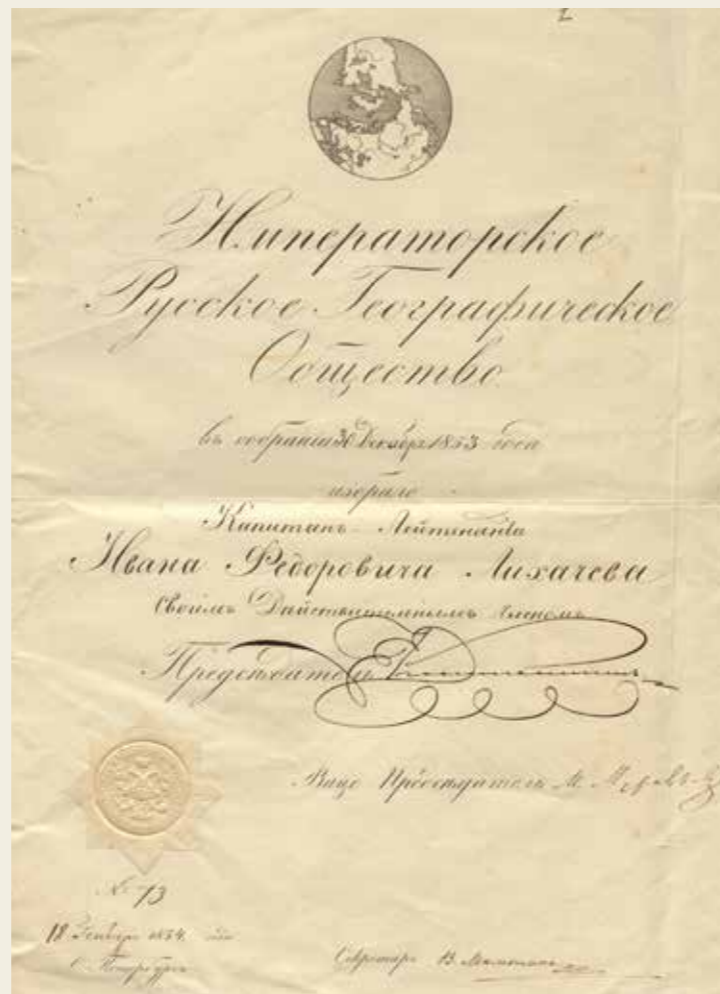 Императорское
Русское Географическое
Общество
въ собрании 30 Декабря 1853 года
избрало
Капитанъ-Лейтенанта
Ивана Федоровича Лихачева
Своимъ Действительнымъ Членомъ
Председатель
Вице Председатель М. Муравьев
№ 73
18 1854
С. Петербургъ
Секретарь В.